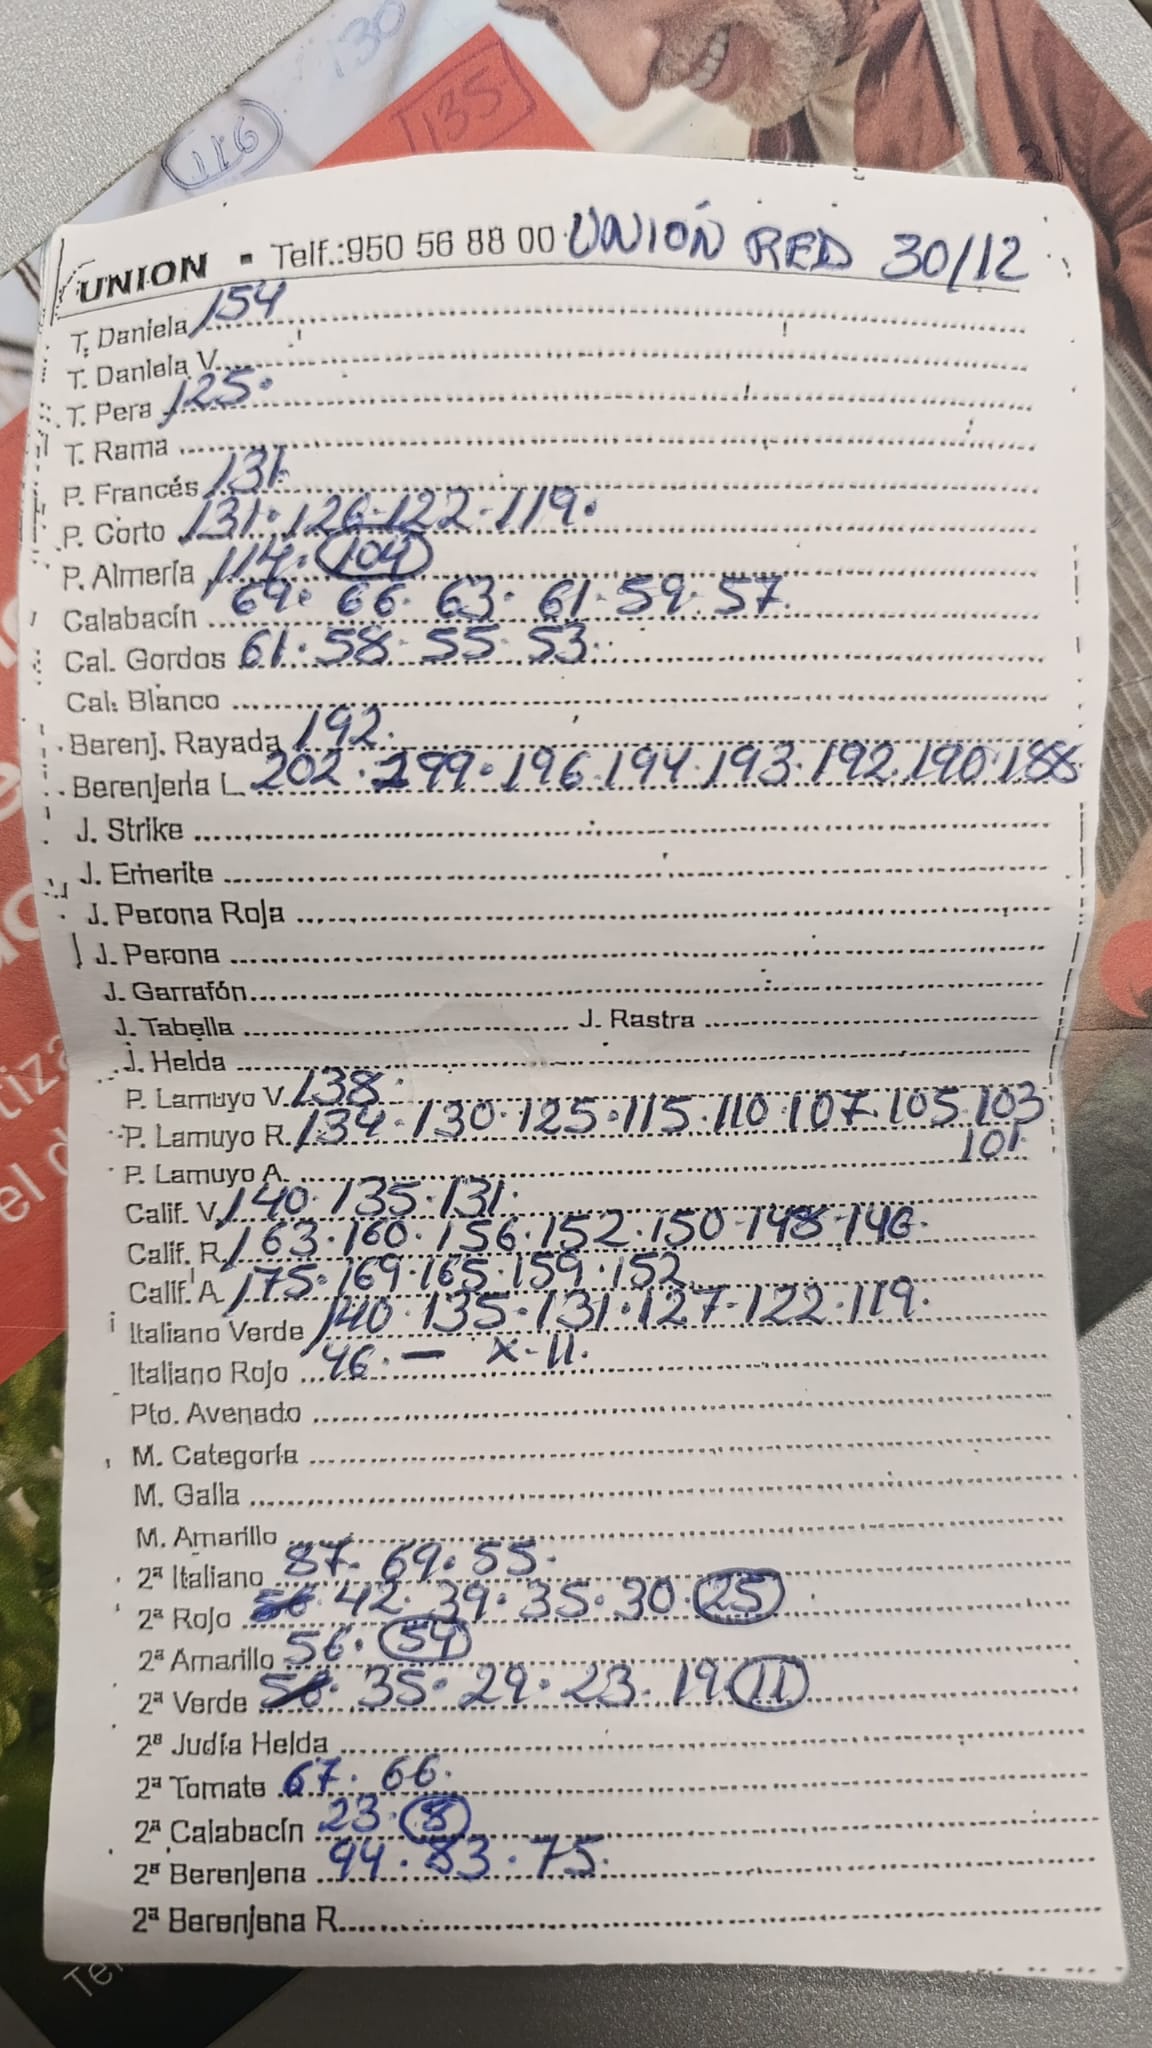 130
116
135
UNION - Telf.:950 56 88 00 UNIÓN RED 30/12
T. Daniela 154
T. Daniela V.
T. Pera 125.
T. Rama
P. Francés 131.
P. Corto 131. 126-122. 119.
P. Almería 114. 104
Calabacín 69. 66. 63. 61. 59. 57.
Cal. Gordos 61. 58. 55. 53.
Cal. Blanco
Berenj. Rayada 192.
Berenjena L. 202. 299. 196. 194. 193. 192. 190. 188
J. Strike
J. Emerite
J. Perona Roja
J. Perona
J. Garrafón
J. Tabella J. Rastra
J. Helda
P. Lamuyo V. 138.
P. Lamuyo R. 134. 130. 125. 115. 110. 107. 105. 103
101.
P. Lamuyo A.
Calif. V. 140. 135. 131.
Calif. R. 163. 160. 156. 152. 150-148-146.
Calif. A. 175. 169. 165. 159. 152.
Italiano Verde 140. 135. 131. 127-122. 119.
Italiano Rojo 46. — X-11.
Pto. Avenado
M. Categoría
M. Galla
M. Amarillo
2ª Italiano 87. 69. 55.
2ª Rojo 42. 39. 35. 30. 25
2ª Amarillo 56. 54
2ª Verde 35. 29. 23. 19. 11
2ª Judía Helda
2ª Tomate 67. 66.
2ª Calabacín 23. 8
2ª Berenjena 94. 83. 75.
2ª Berenjena R.